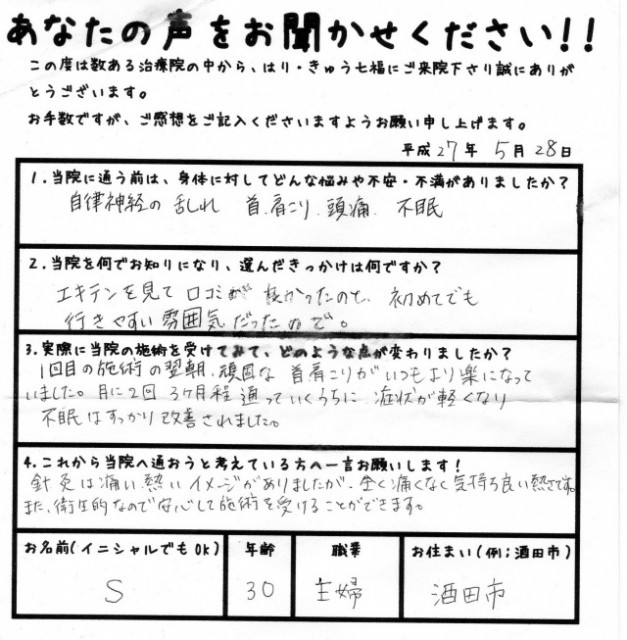 あなたの声をお聞かせください!!
この度は数ある治療院の中から、はり・きゅう七福にご来院下さり誠にありが
とうございます。
お手数ですが、ご感想をご記入くださいますようお願い申し上げます。
平成27年 5月28日
1.当院に通う前は、身体に対してどんな悩みや不安・不満がありましたか?
自律神経の乱れ 首.肩こり.頭痛. 不眠
2.当院を何でお知りになり、選んだきっかけは何ですか?
エキテンを見て口コミが良かったのと、初めてでも
行きやすい雰囲気だったので。
3.実際に当院の施術を受けてみて、どのような点が変わりましたか?
1回目の施術の翌朝、頑固な首肩こりがいつもより楽になって
いました。月に2回3ヶ月程通っていくうちに症状が軽くなり
不眠はすっかり改善されました。
4.これから当院へ通おうと考えている方へ一言お願いします!
針灸は痛い.熱いイメージがありましたが、全く痛くなく気持ち良い熱さです。
また、衛生的なので安心して施術を受けることができます。
お名前(イニシャルでもOK) 年齢 職業 お住まい(例;酒田市)
S 30 主婦 酒田市